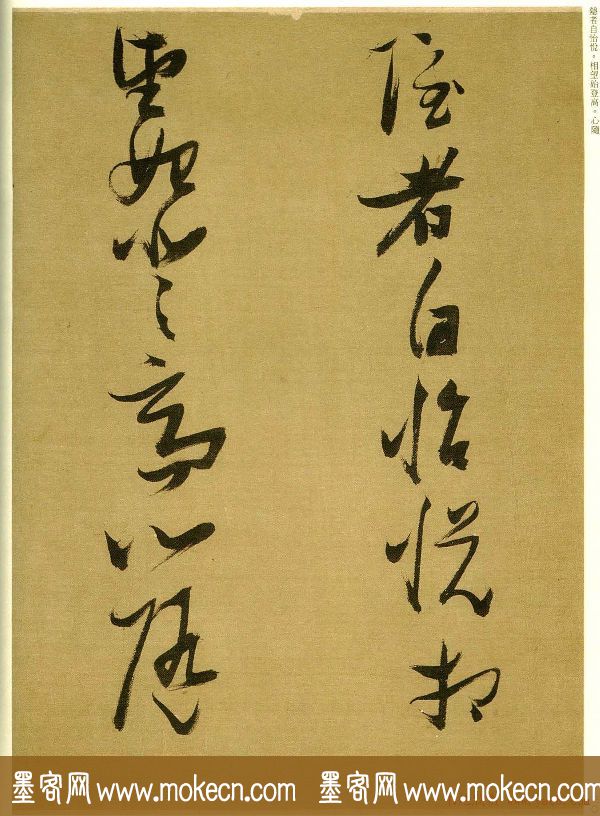 隱者自怡悅，相望始登高。心隨
隱者自怡悅相
望始登高心隨
墨客网 www.mokecn.com 墨客网 www.mokecn.com